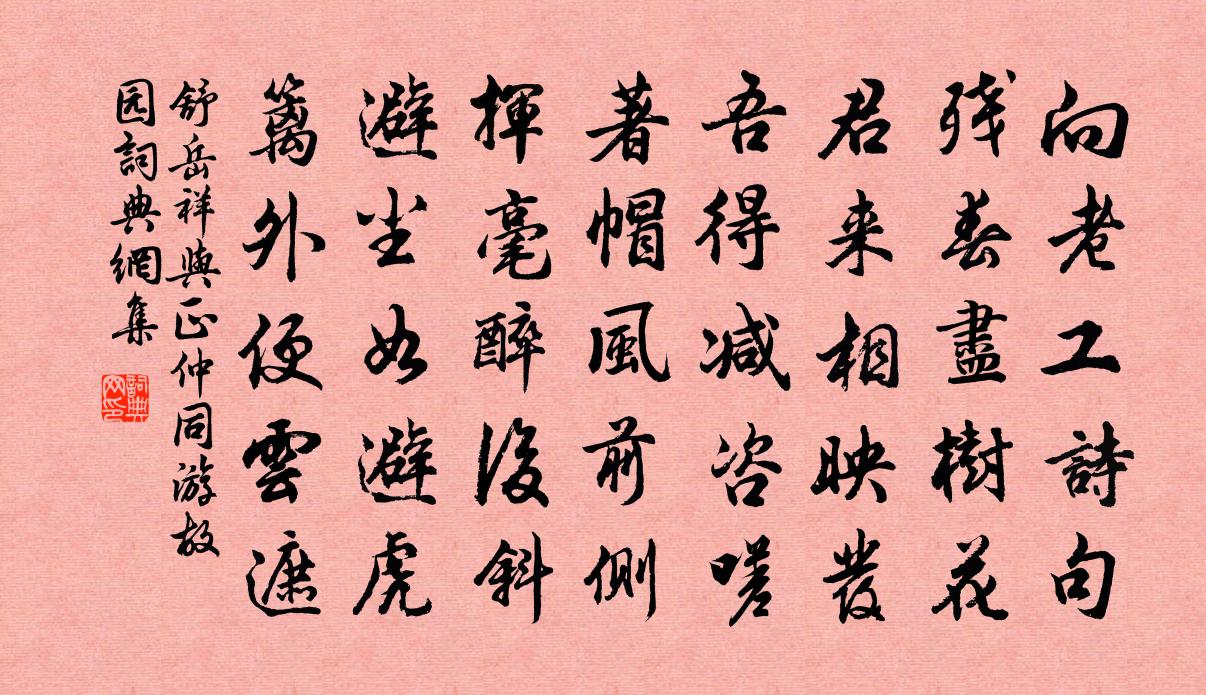 向老工詩句
残春盡樹花
君来相映發
吾得减咨嗟
著帽風前側
揮毫醉後斜
避尘如避虎
篱外便雲遮
舒岳祥與正仲同游故
园詞典網集
詞典
网印